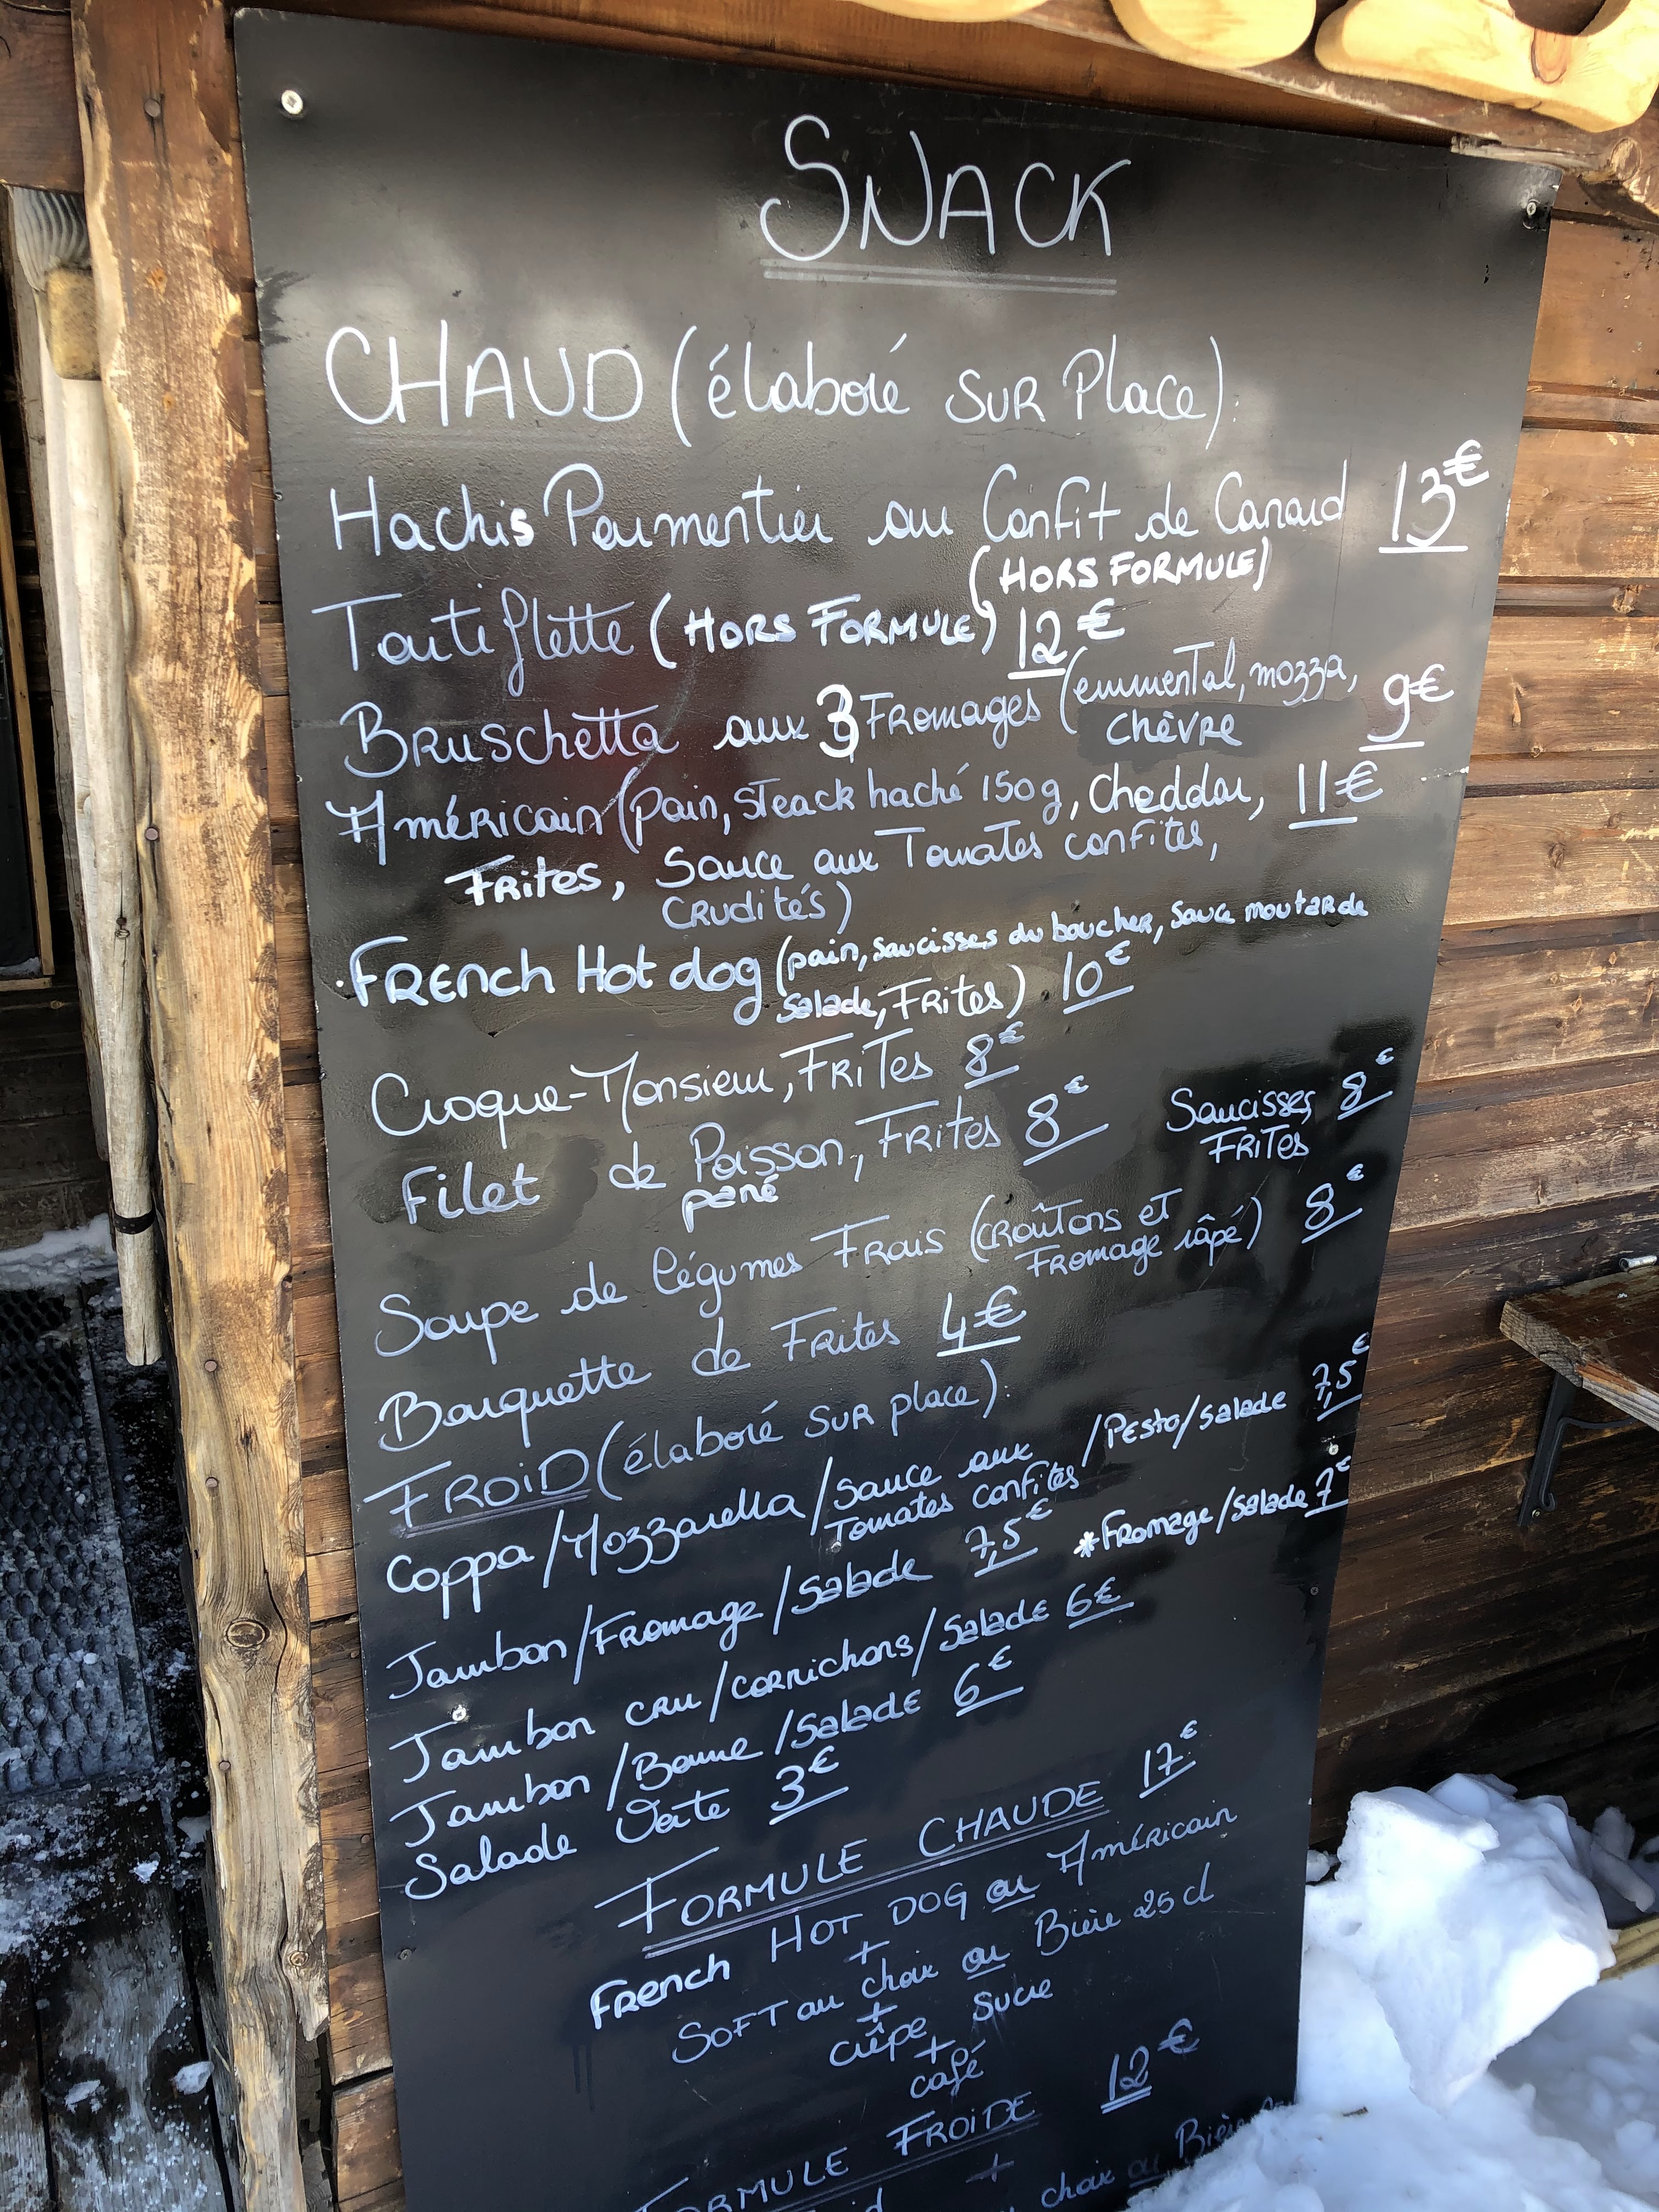 SNACK
CHAUD (élaboré SUR Place):
Hachis Parmentier au Confit de Canard 13€
(HORS FORMULE)
Tartiflette (HORS FORMULE) 12€
BRUSChetta aux 3 FROMAGES (emmental, mozza, 9€
chèvre
Américain (pain, steack haché 150g, Cheddar, 11€
FRites, Sauce aux Tomates confites,
CRUdités)
.FRENCh Hot dog (pain, saucisses du boucher, sauce moutarde
salade, FRites) 10€
Croque-Monsieur, FRiTes 8€
Filet de Poisson, FRites 8€
pané
Saucisses, 8€
FRiTes
Soupe de légumes FRais (CROÛtons et 8€
FROMAGE râpé)
Barquette de FRites 4€
FROiD (élaboré SUR place):
Coppa / Mozzarella / Sauce aux / Pesto / salade 7,5€
Tomates confites
Jambon / FROMAGE / Salade 7,5€ *FROMAGE / Salade 7€
Jambon CRU / CORNichons / Salade 6€
Jambon / Beurre / Salade 6€
Salade Verte 3€
FORMULE CHAUDE 17€
FRENCh HOT DOG ou Américain
+
SOFT au choix ou Bière 25 cl
+
crêpe sucre
+
café
FORMULE FROIDE 12€
+
choix ou Bière